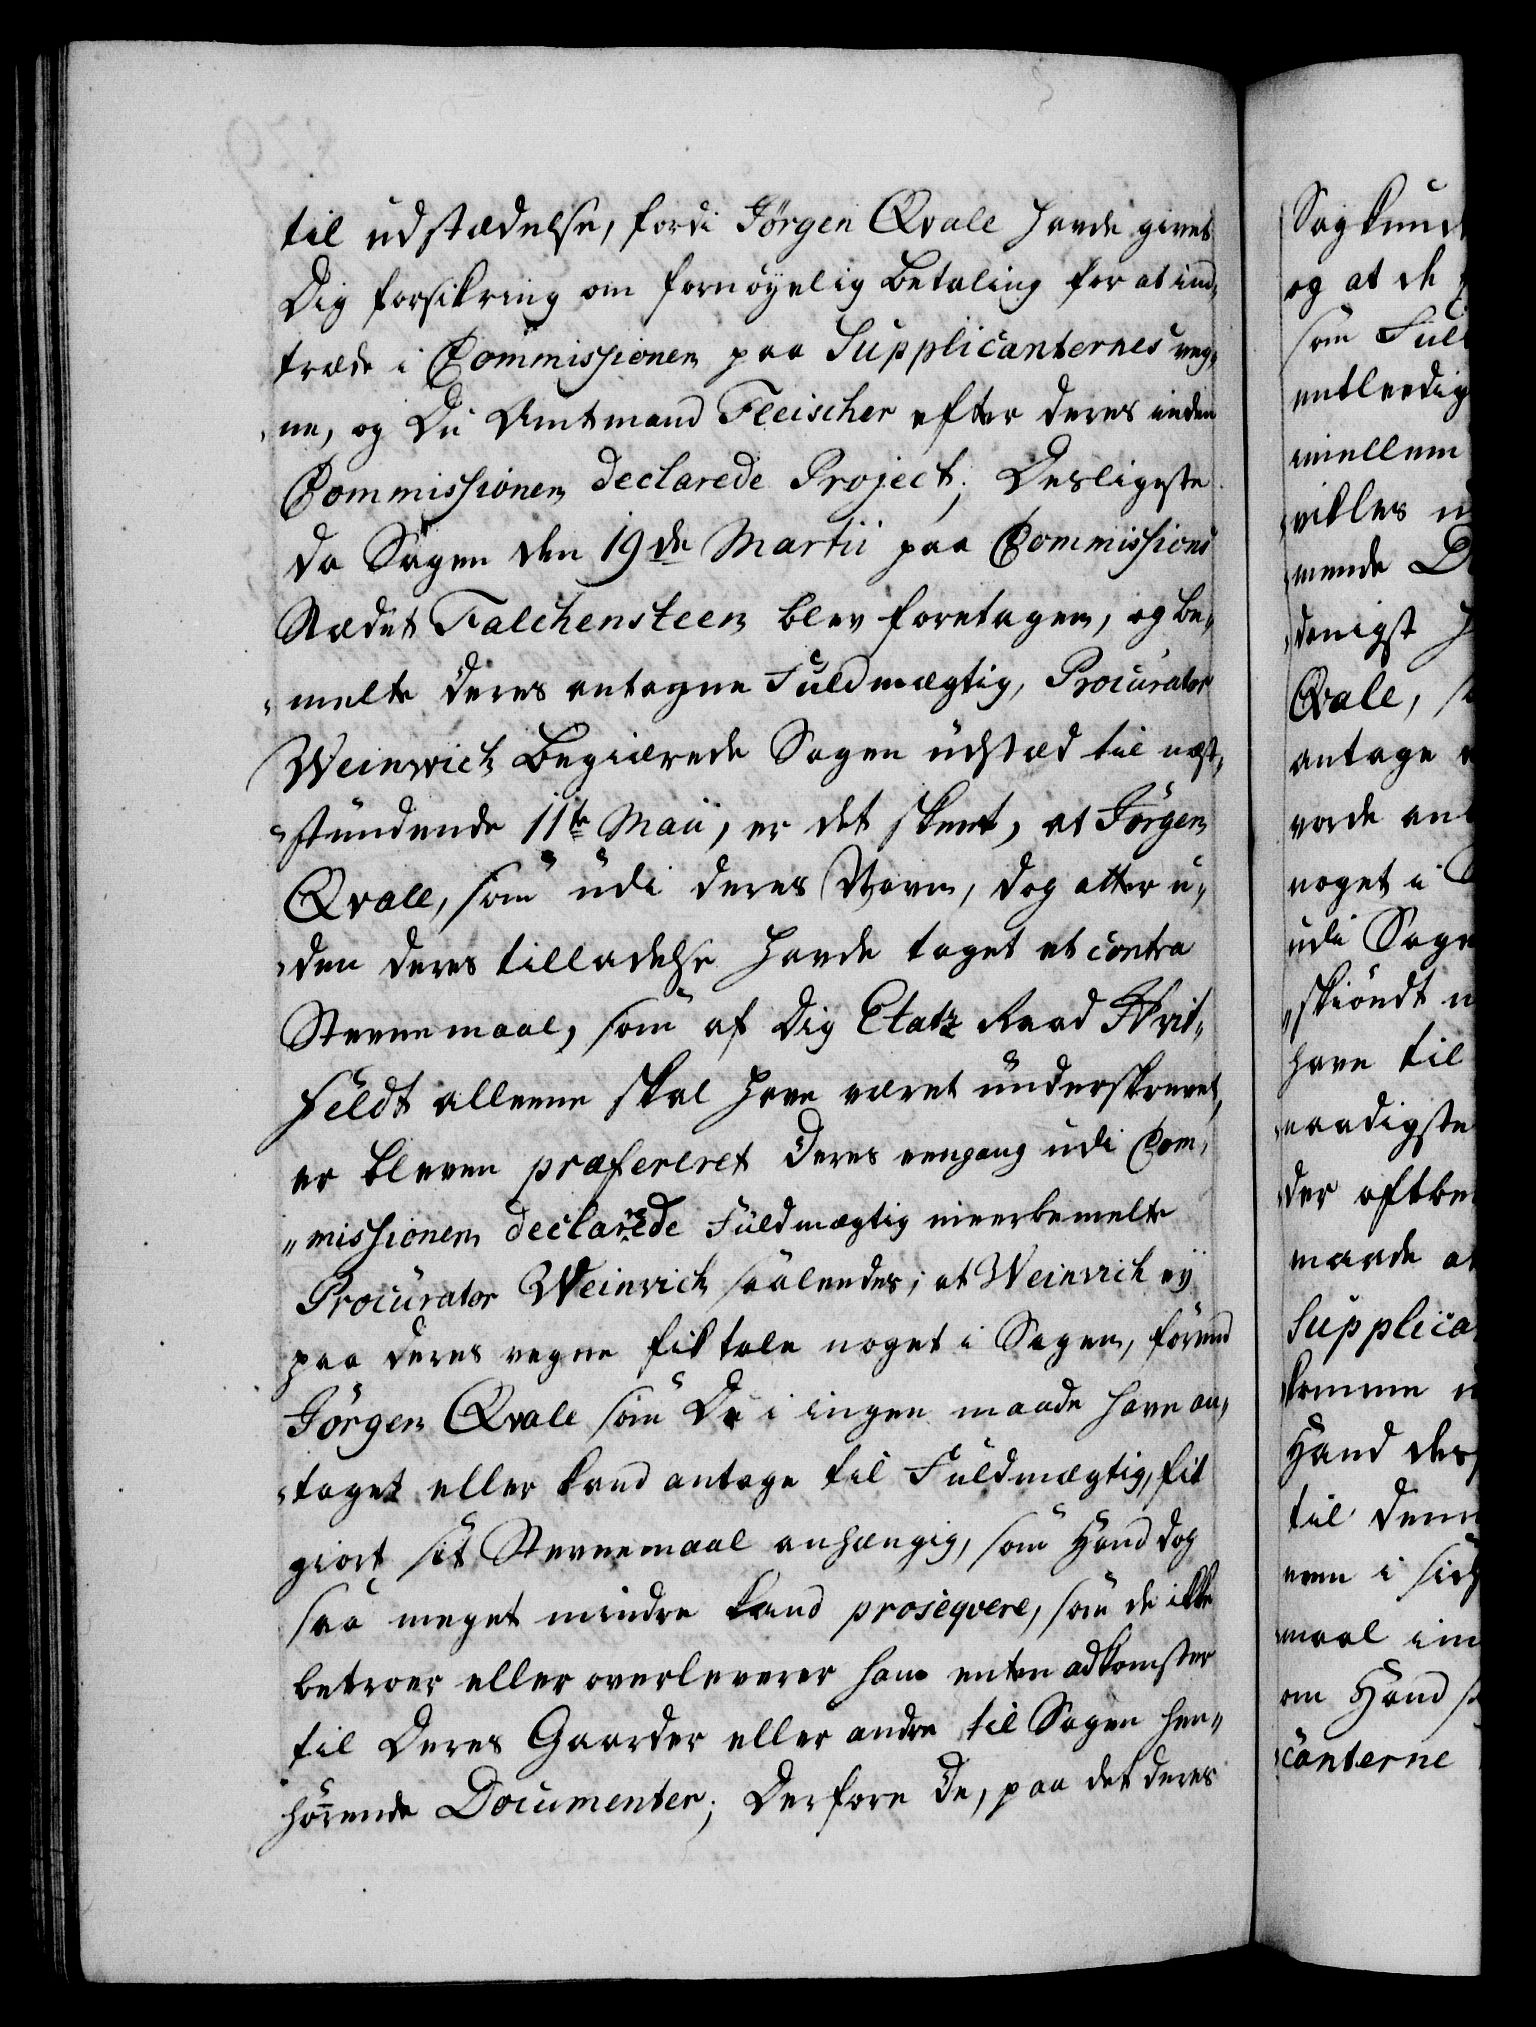 til udstædelse, fordi Jörgen Qvale havde givet
Dig forsikring om fornöyelig betaling for at ind-
træde i Commissionen paa Supplicanternes veg-
ne, og Du Amtmand Fleischer efter deres inden
Commissionen declarede Project; Desligeste
da Sagen den 19de Martii paa Commissions
Stædet Falchensteen blev foretagen, og be-
melte deres antagne Fuldmægtig, Procurator
Weinwich begiærede Sagen udstæd til næst-
stundende 11te Maii, er det skeet, at Jörgen
Qvale, som udi deres Navn, dog atter u-
den deres tilladelse havde taget et contra
Stevnemaal, som af Dig Etatz Raad Hvit-
feldt alleene skal have været underskrevet,
er bleven præfereret deres eengang udi Com-
missionen declarerede Fuldmægtig meerbemelte
Procurator Weinwich saaledes; at Weinwich ey
paa deres vegne fik tale noget i Sagen, förend
Jörgen Qvale som De i ingen maade have an-
taget eller kand antage til Fuldmægtig, fik
giort sit Stevnemaal anhængig, som Hand dog
saa meget mindre kand proseqvere, som de ikke
betroer eller overleverer ham enten adkomster
til Deres Gaarder eller andre til Sagen hen-
hörende Documenter; Derfore De, paa det deres
og at de
som Ful
entledig
imellem
villes
mende
denigst
Qvale,
antage
vorde an
noget i
udi Sage
skiöndt
have til
naadigste
der oftbe
maade
Supplica
komme
Hand des
til denn
een i sid
maal im
om Hand
canterne